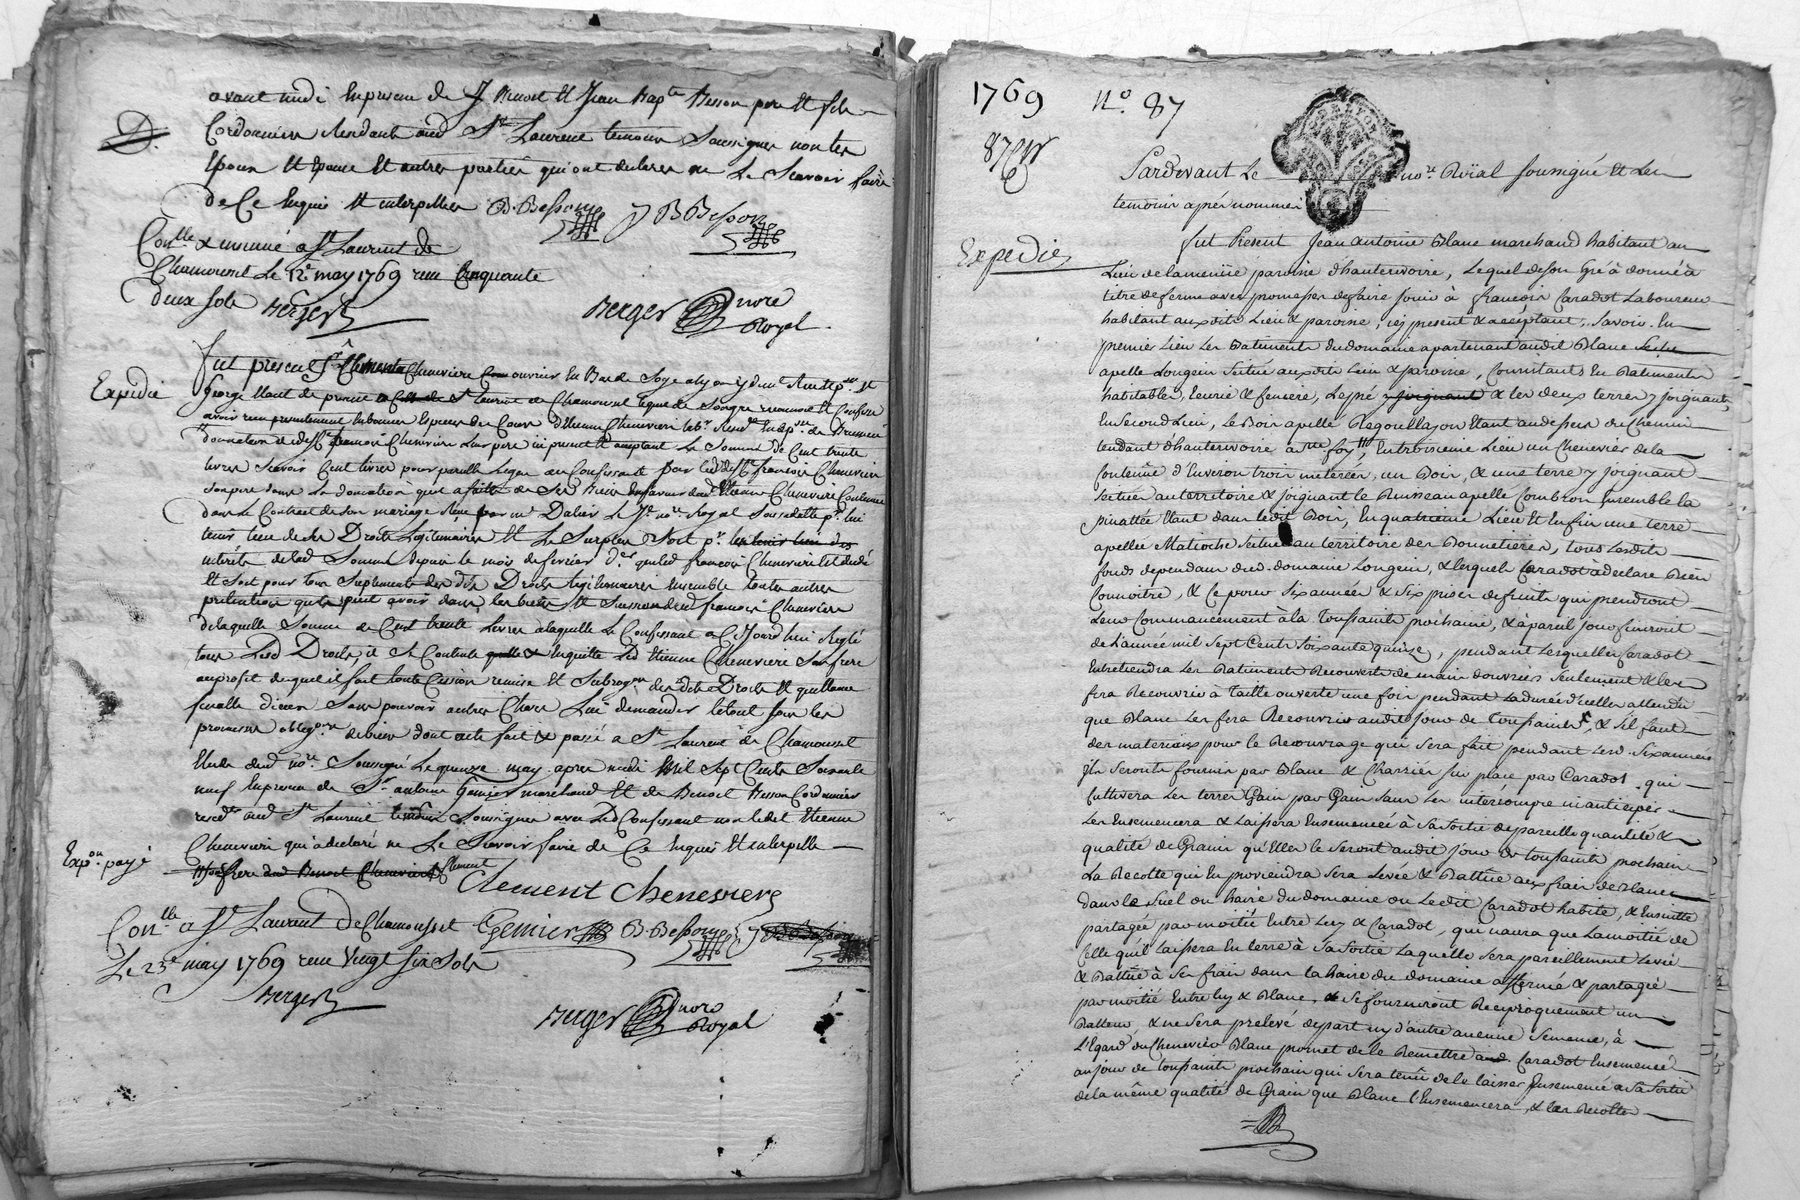 avant midi En presence de J Benoit Et Jean Bapte Besson pere Et fils
Cordonniers Residants aud St Laurent temoins Soussignes non les
Epoux Et Epouse Et autres parties qui ont declarer ne Le Scavoir faire
de Ce Enquis Et interpellés B. Besson J B Besson
Conlle & insinué a St Laurent de
Chamousset Le 12e may 1769 reçu Cinquante
deux sols Berger
Berger nore
Royal
Expedié
fut present Sr Clement Cheneviere ouvrier En Bas de Soye a Lyon y demt Rue & psse St
George Etant de present a St Laurent de Chamousset lequel de Son gre reconnoit Et Confesse
avoir reçu presentement En bonnes Especes de Cours d'Etienne Cheneviere
donnation de François Cheneviere Leur pere ici present Et acceptant La Somme de Cent trente
livres Scavoir Cent livres pour pareille Leguée au Confessant par led François Cheneviere
Son pere dans La donnation qu'il a faitte de Ses Biens En faveur dud Etienne Cheneviere Contenue
dans le Contract de Son mariage Reçu par me Dalier Le Je nore Royal Pour lui
tenir lieu de Ses Droits Legitimaires Et Le Surplus Soit pr
interets de lad Somme depuis le mois de fevrier der que led françois Cheneviere Est decedé
Et Soit pour tous Suplements des dits Droits Legitimaires Ensemble toutes autres
pretentions qu'il peut avoir dans les biens Et Succession dud françois Cheneviere
de laquelle Somme de Cent trente Livres a laquelle Le Confessant a Cejourd'hui Reglé
tous Lesd Droits, il Se Contente & En quitte Led Etienne Cheneviere Son frere
au profit duquel il fait toute Cession remise Et Subrogon des dits Droits Et quittance
finalle d'iceux Sans pouvoir autres Choses Lui demander Le tout Sous les
promesses obligons de biens dont acte fait & passé a St Laurent de Chamousset
Etude dud nore Soussigné Le quinze may apres midi Mil Sept Cents Soixante
neuf En presence de Sr antoine Gemier marchand Et de Benoit Besson Cordonnier
resdts aud St Laurent temoins Soussignes avec Led Confessant non ledit Etienne
Cheneviere qui a declaré ne Le Scavoir faire de Ce Enquis Et interpellé
Expon payé
Clement
Clement Cheneviere
Conlle a St Laurent De Chamousset Gemier B. Besson
Le 23e may 1769 reçu Vingt six Sols
Berger
Berger nore
Royal
1769 No 87
Pardevant Le nore Roïal soussigné Et Les
temoins après nommés
Expedié
fut Present Jean antoine Blanc marchand habitant au
Lieu de lamenüe paroisse d'hauterivoire, Lequel de son Gré à donné à
titre de ferme avec promesses de faire Jouir à françois Caradot Laboureur
habitant auxdits Lieu & paroisse, icy present & acceptant, Savoir En
premier Lieu Les Batiments du domaine apartenant audit Blanc
apellé Longeon Scitué auxdits Lieu & paroisse, Consistants En Batiments
habitables, Ecurie & feniere, Le pré & les deux terres y joignants,
En Second Lieu, Le Bois apellé Regouillajon Etant au dessus du Chemin
tendant d'hauterivoire à Ste foy, En troisieme Lieu un Chenevier de la
Contenüe d'Environ trois meterées, un Bois, & une terre y joignant
Scitués au territoire & joignant le Ruisseau apellé Combron Ensemble la
pinattée Etant dans ledit Bois, En quatrieme Lieu Et Enfin une terre
apellée Matioche Scituée au territoire des Bonnetieres, tous Lesdits
fonds dependans dud. domaine Longeon, & lesquels Caradot a declaré Bien
Connoitre, & Ce pour Six années & Six prises de fruits qui prendront
Leur Commancement à la Toussaints prochaine, & à pareil jour finiront
de L'année mil Sept Cents Soixante quinze, pendant Lesquelles Caradot
Entretiendra Les Batiments Recouverts de main d'ouvriers Seulement & les
fera Recouvrir à Taille ouverte une fois pendant La durée d'icelles attendu
que Blanc Les fera Recouvrir audit Jour de Toussaints, & S'il faut
des materiaux pour le Recouvrage qui Sera fait pendant Lesd. Six années
Ils Seronts fournis par Blanc & Charriés Sur place par Caradot qui
Cultivera Les terres Gain par Gain Sans Les interrompre ni anticiper
Les Ensemencera & Laissera Ensemencées à Sa Sortie de pareille quantité &
qualité de Grains qu'Elles le Seront audit jour de toussaints prochain
La Recolte qui En proviendra Sera Levée & Battüe aux frais de Blanc
dans le Suel ou haire du domaine ou Ledit Caradot habite, & Ensuitte
partagée par moitié Entre Luy & Caradot, qui n'aura que La moitié de
Celle qu'il laissera En terre à Sa Sortie Laquelle Sera pareillement Levée
& Battüe à Ses frais dans la haire du domaine affermé & partagée
par moitié Entre luy & Blanc, Se fourniront Reciproquement un
Batteur, & ne Sera prelevé de part ny d'autre aucune Semence, à
L'Egard du Chenevier Blanc promet de le Remettre aud. Caradot Ensemencé
au jour de toussaints prochain qui Sera tenû de le laisser Ensemencé a Sa Sortie
de la même qualité de Grain que Blanc l'Ensemencera, & les Recoltes